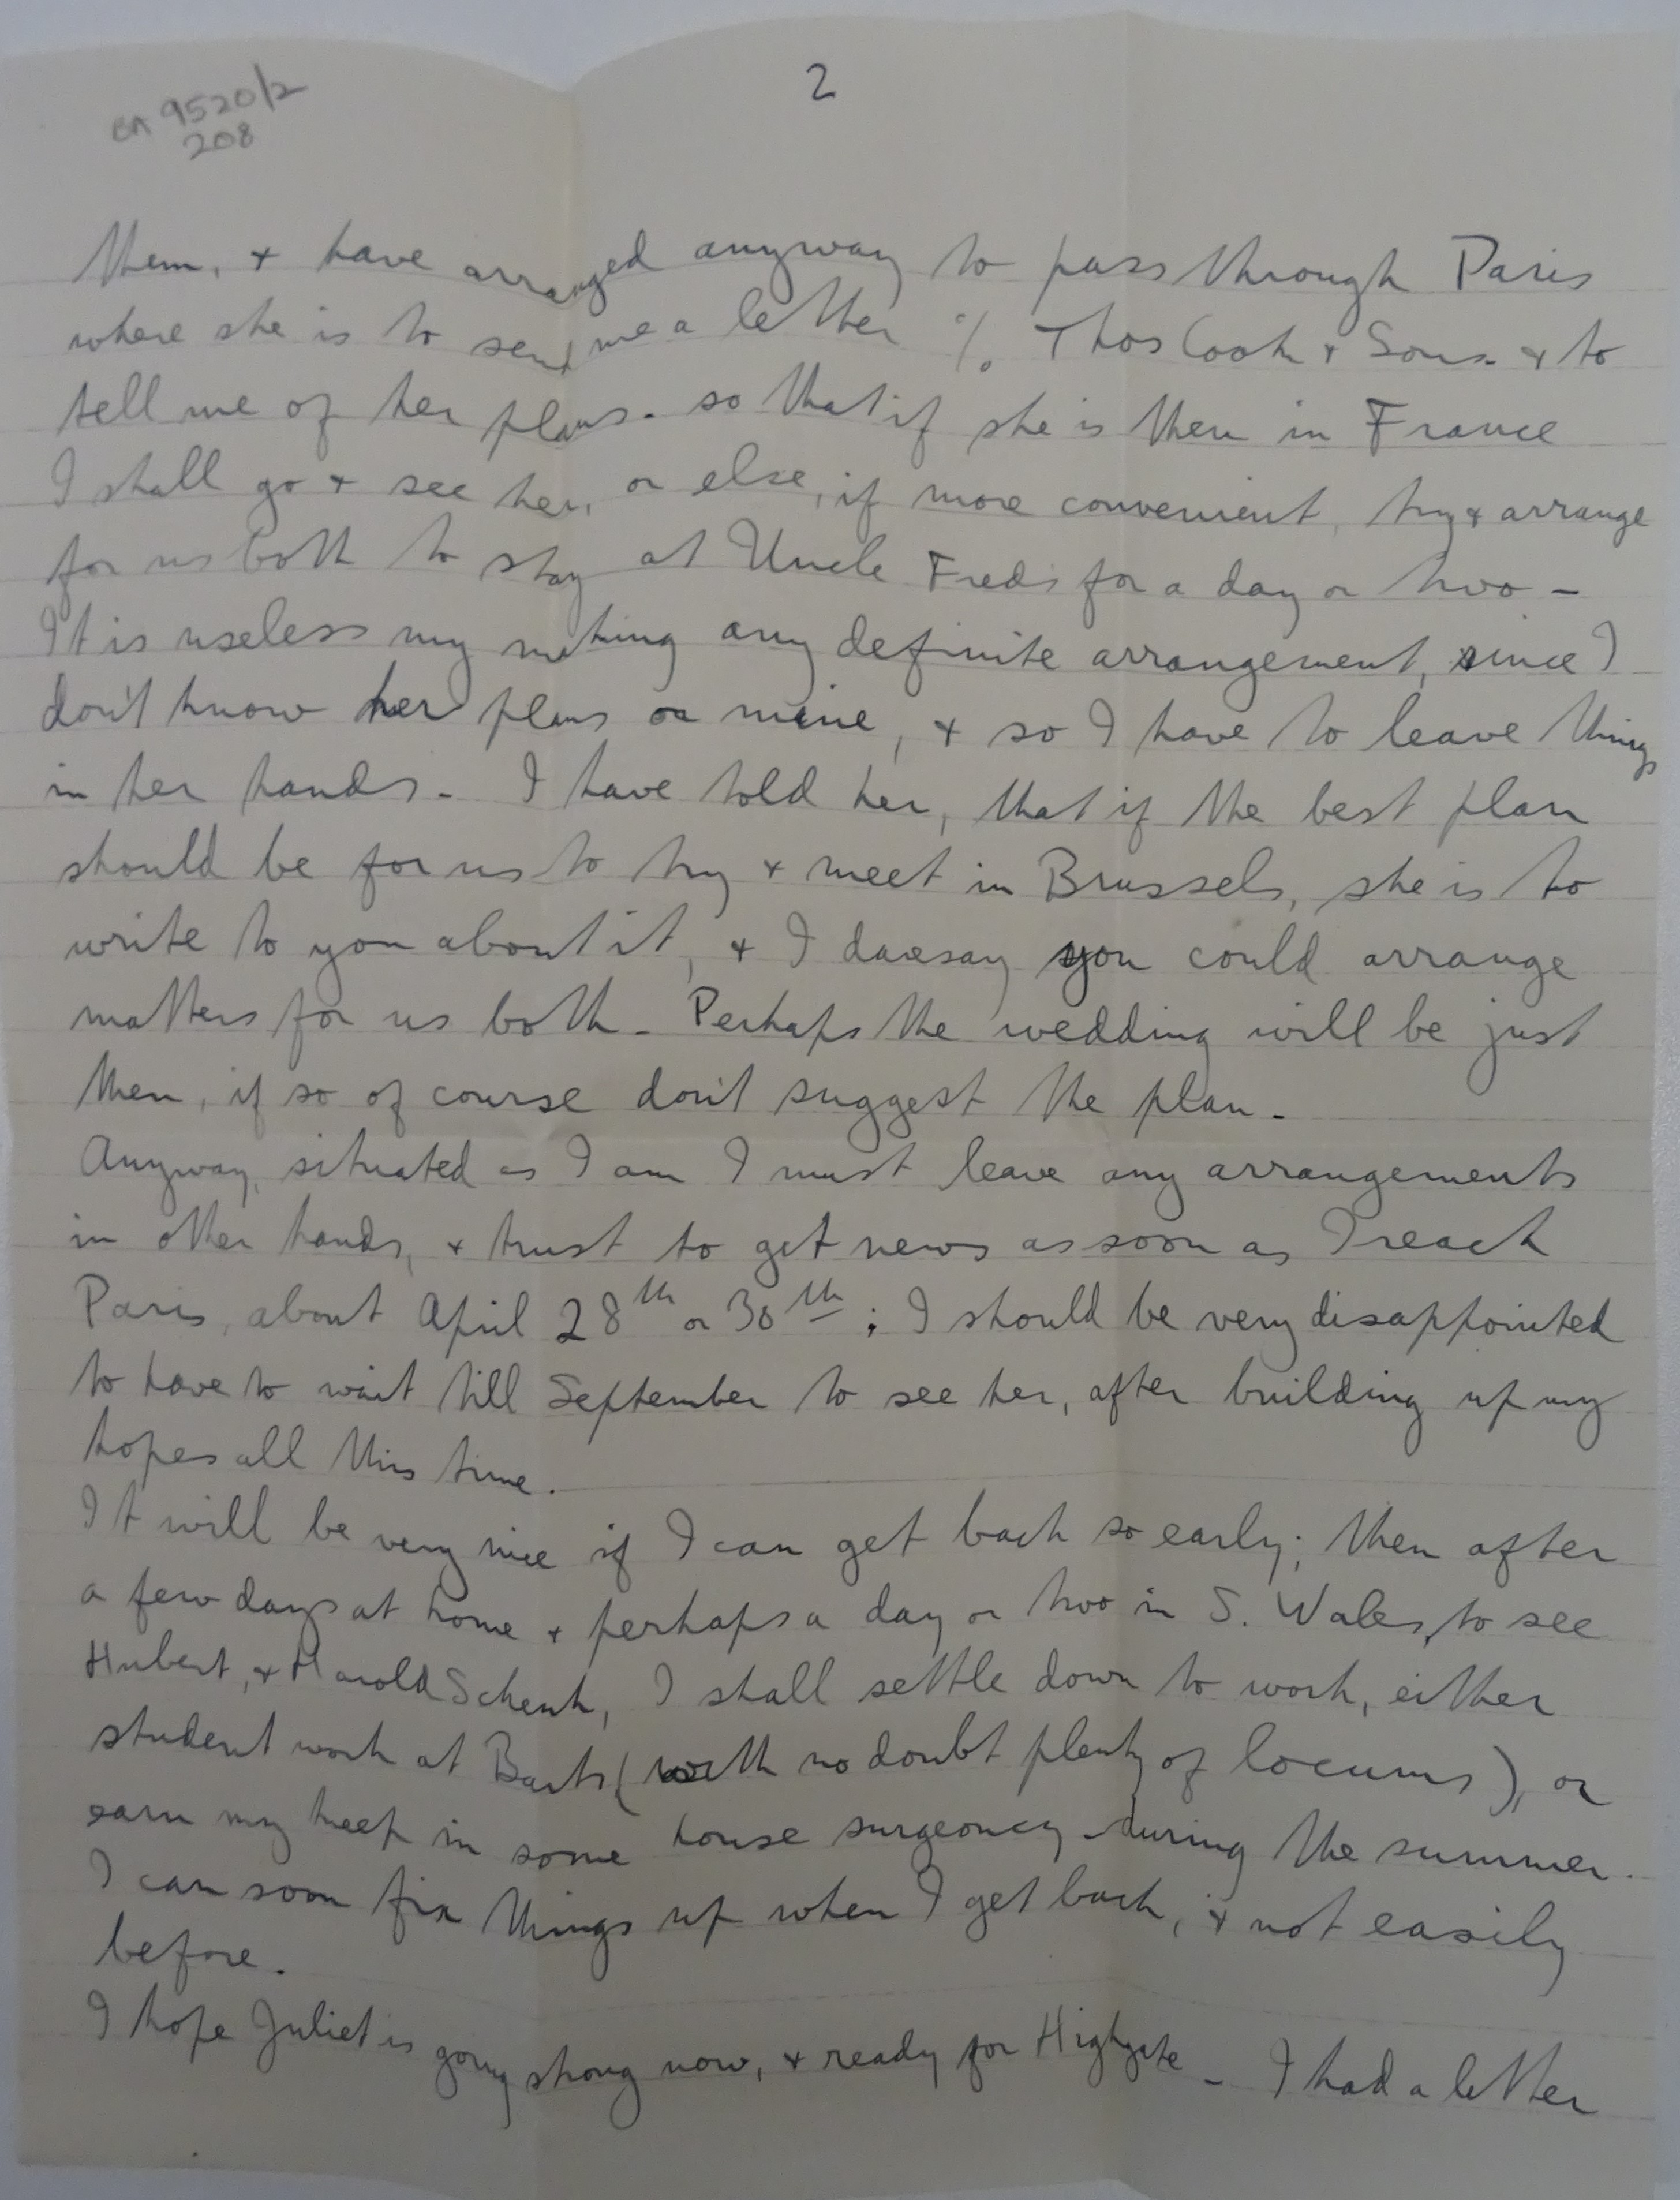 BA 9520/2
208
2
them, + have arranged anyway to pass through Paris
where she is to send me a letter c/o Thos Cook + Sons - + to
tell me of her plans - so that if she is then in France
I shall go + see her, or else, if more convenient, try + arrange
for us both to stay at Uncle Fred's for a day or two -
It is useless my making any definite arrangement, since I
don't know her plans or mine, + so I have to leave things
in her hands - I have told her, that if the best plan
should be for us to try + meet in Brussels, she is to
write to you about it, + I daresay you could arrange
matters for us both - Perhaps the wedding will be just
then, if so of course don't suggest the plan -
Anyway, situated as I am I must leave any arrangements
in other hands, + trust to get news as soon as I reach
Paris, about April 28th or 30th; I should be very disappointed
to have to wait till September to see her, after building up my
hopes all this time.
It will be very nice if I can get back so early; then after
a few days at home + perhaps a day or two in S. Wales, to see
Hubert, + Harold Schenk, I shall settle down to work, either
student work at Barts (with no doubt plenty of locums), or
earn my keep in some house surgeoncy - during the summer.
I can soon fix things up when I get back, + not easily
before.
I hope Juliet is going strong now, + ready for Highgate - I had a letter